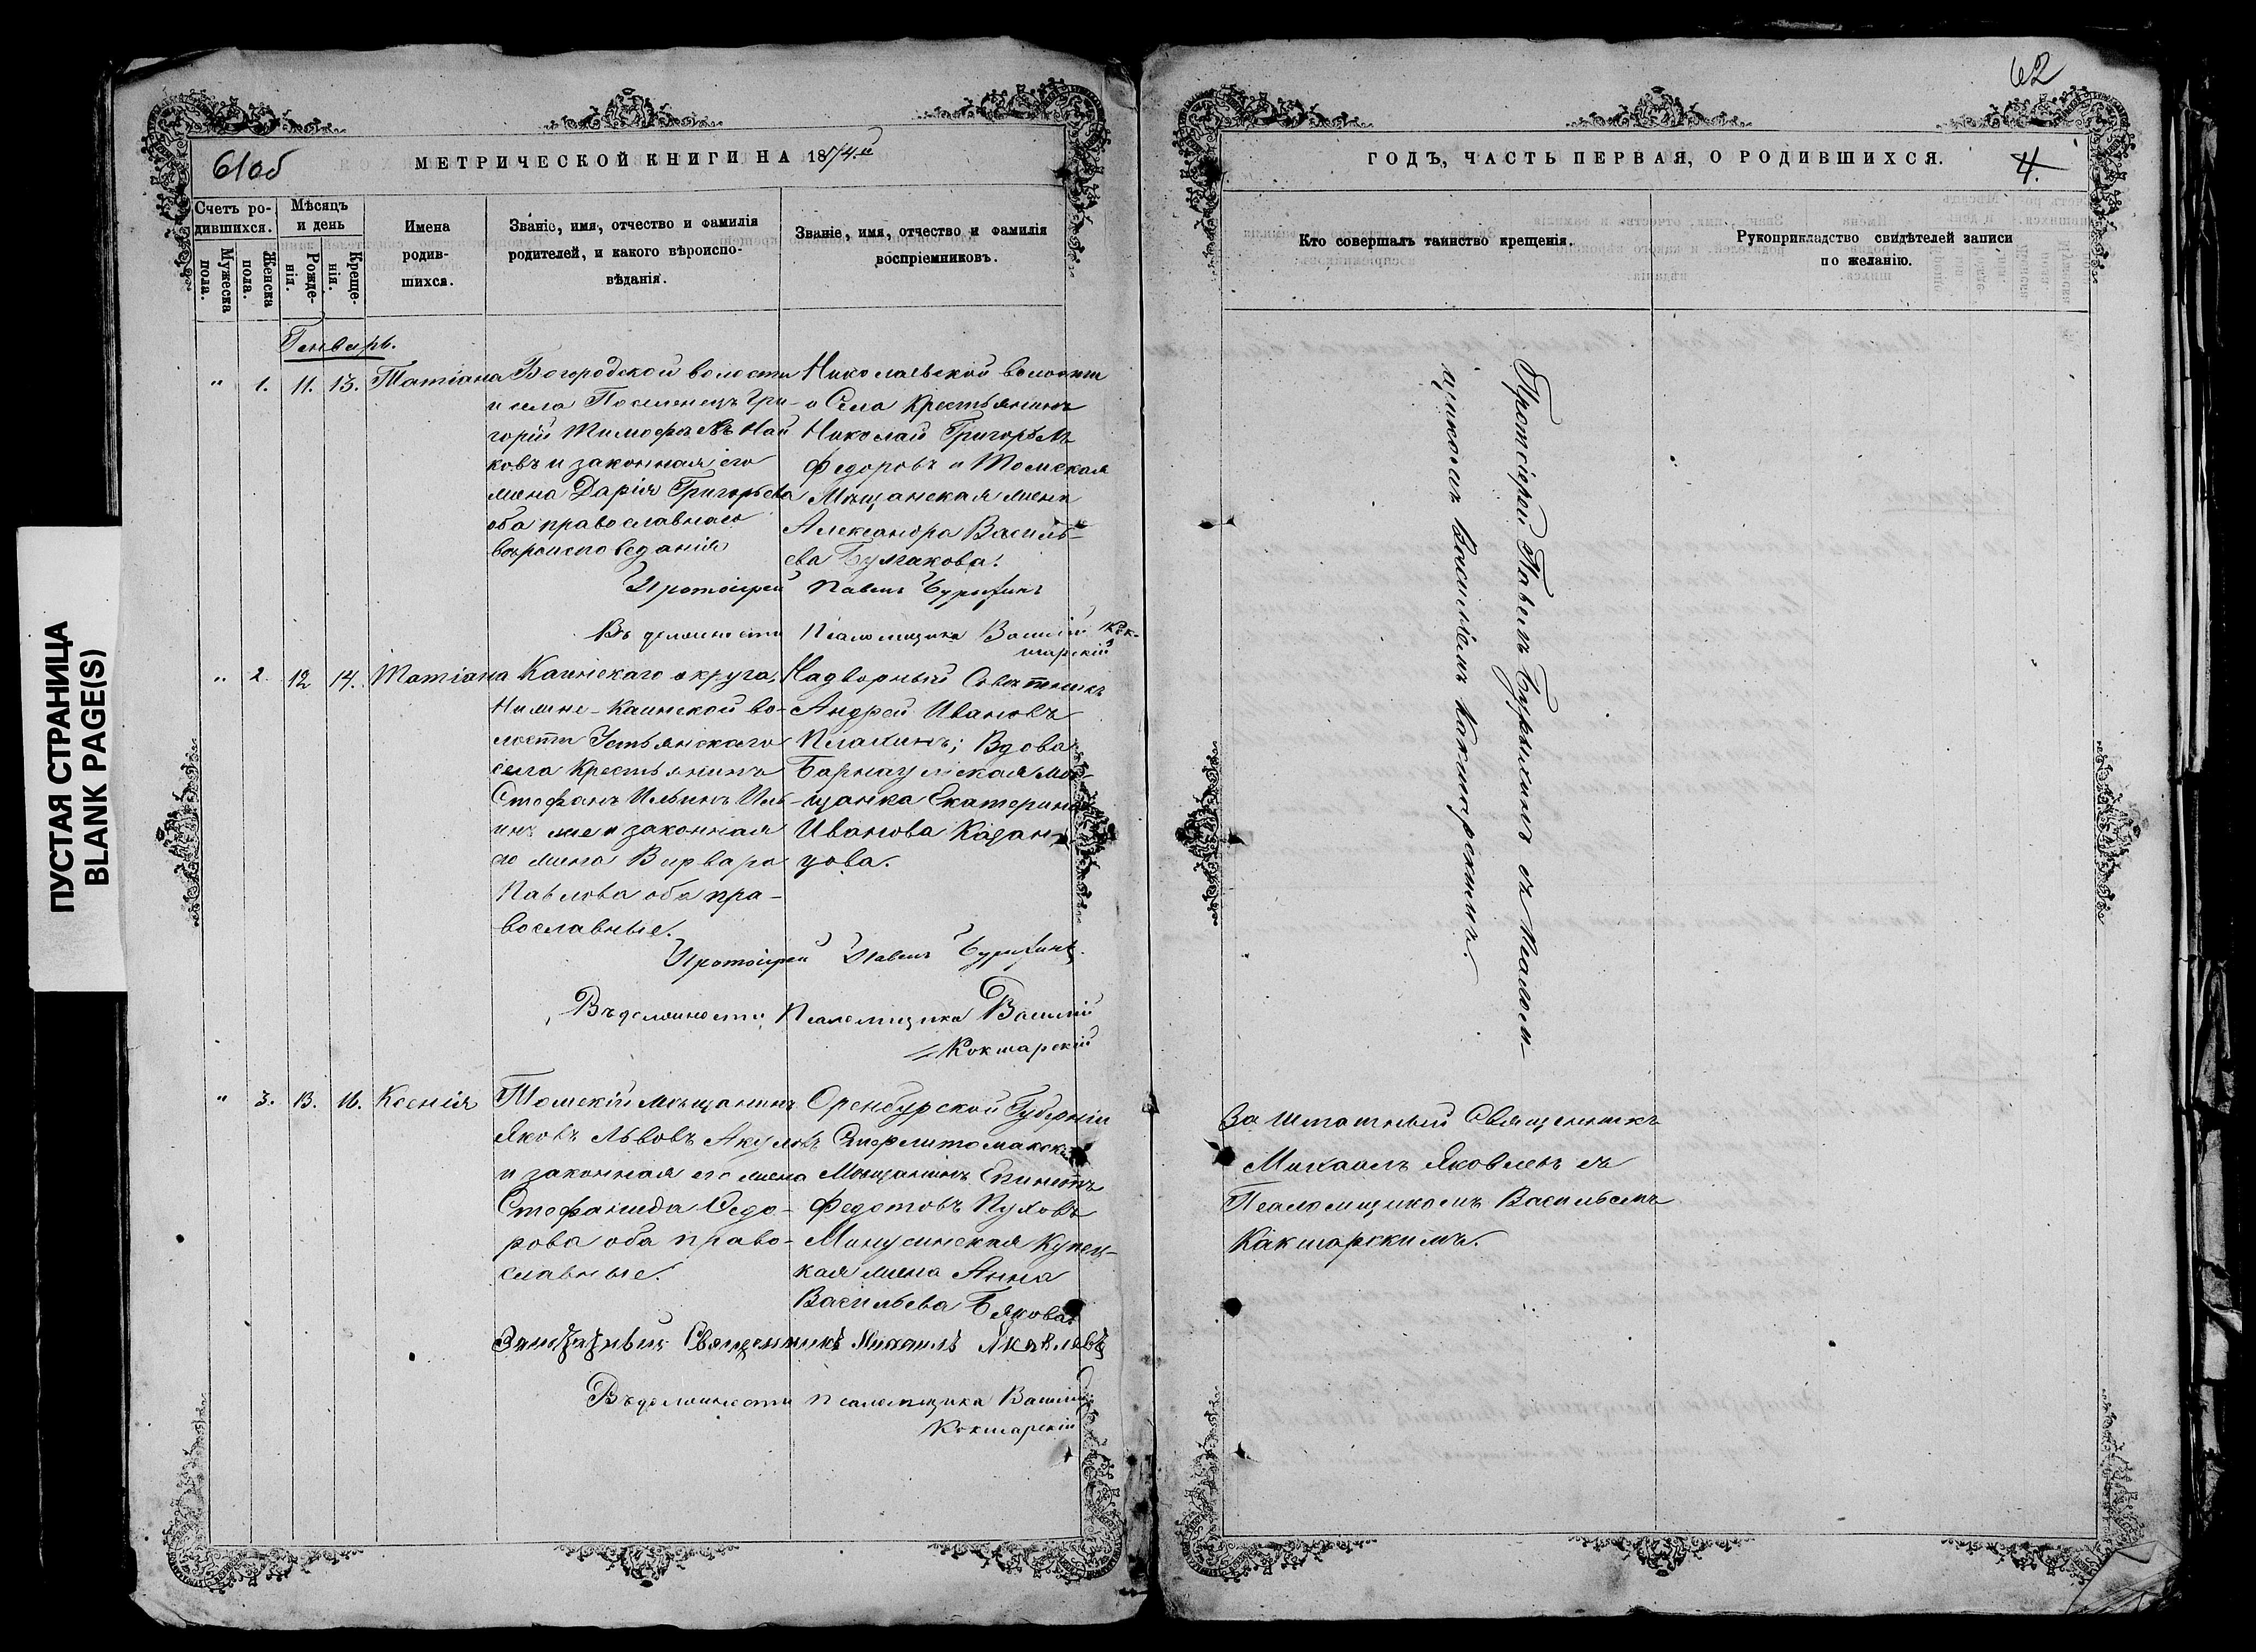 ПУСТАЯ СТРАНИЦА
BLANK PAGE(S)
61об
МЕТРИЧЕСКОЙ КНИГИ НА 1874й
Счетъ ро-
дившихся.
Мужеска пола.
Женска пола.
Мѣсяцъ
и день
Рожде-
нія.
Креще-
нія.
Имена
родив-
шихся.
Званіе, имя, отчество и фамилія
родителей, и какого вѣроиспо-
вѣданія.
Званіе, имя, отчество и фамилія
воспріемниковъ.
Генварь.
" 1. 11. 13. Татіана
Богородской волости
и села Поселенецъ Гри-
горій Тимофѣевъ
ковъ и законная его
жена Дарія Григорьева
оба православнаго
вѣроисповеданія
Николаевской волости
о Села Крестьянинъ
Николай Григорьевъ
Федоровъ и Томская
Мѣщанская жена
Александра Василь-
ева Булгакова.
Протоіерей Павелъ
Въ должности Псаломщика Василій Кок-
шарскій
" 2. 12 14. Татіана
Каинскаго округа,
Нижне-Каинской во-
лости Устьянскаго
села Крестьянинъ
Стефанъ Ильинъ Иль-
инъ же и законная
его жена Варвара
Павлова оба пра-
вославные.
Надворный Советникъ
Андрей Ивановъ
Вдова
Барнаульская мѣ-
щанка Екатерина
Иванова Казан-
цова.
Протоіерей Павелъ
Въ должности Псаломщика Василій
Кокшарскій
" 3. 13. 16. Ксенія
Томскій мѣщанинъ
Яковъ Львовъ Акуловъ
и законная его жена
Стефанида Федо-
рова оба право-
славные.
Оренбурской Губерніи
Мѣщанинъ
Федотовъ Пуховъ
Минусинская Купец-
кая жена Анна
Васильева Бякова.
Заштатный Священникъ Михаилъ Яковлевъ
Въ должности псаломщика Василій
Кокшарскій
62
ГОДЪ, ЧАСТЬ ПЕРВАЯ, О РОДИВШИХСЯ.
4.
Кто совершалъ таинство крещенія.
Рукоприкладство свидѣтелей записи
по желанію.
Протоіерей Павелъ съ Псалом-
щикомъ Василіемъ Какшарскимъ.
За Штатный Священникъ
Михаилъ Яковлевъ съ
Псаломщикомъ Васильемъ
Какшарскимъ.